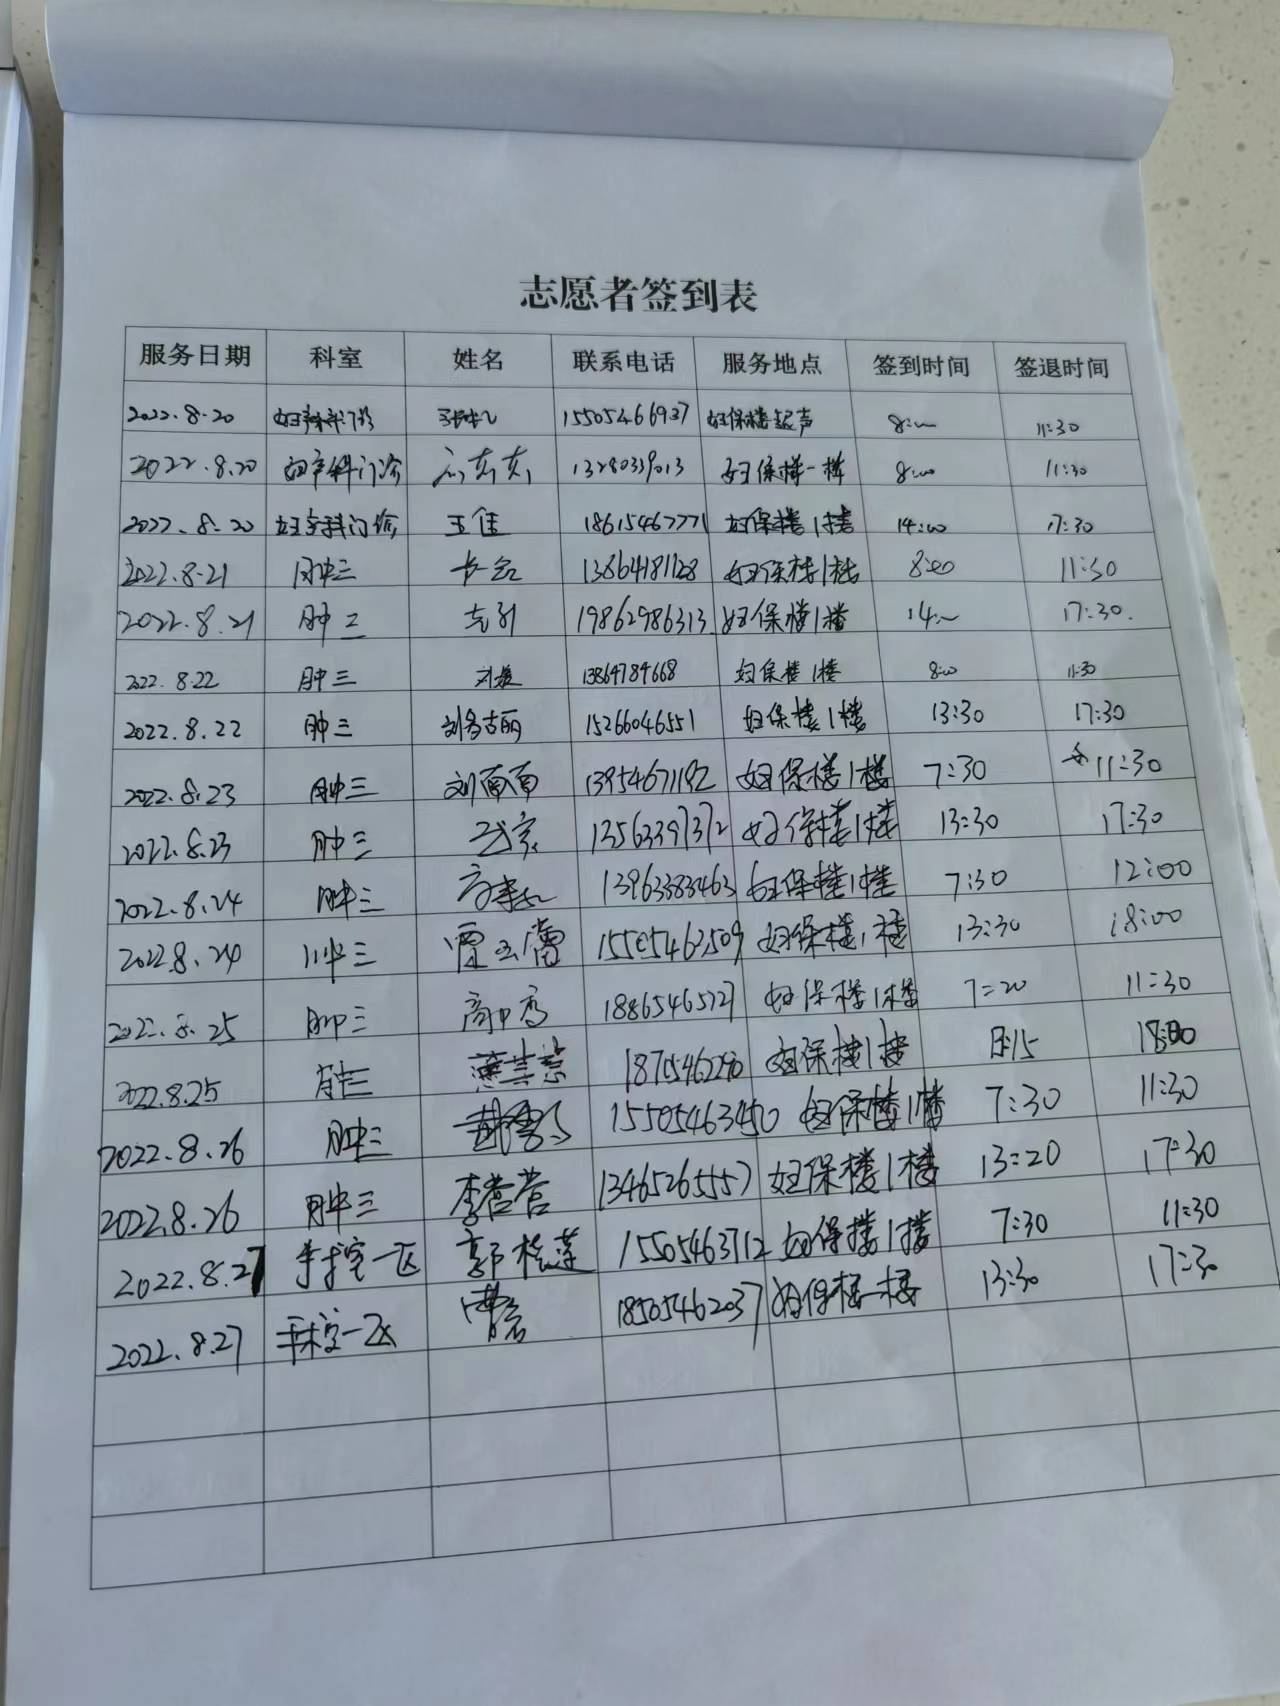 志愿者签到表
服务日期 科室 姓名 联系电话 服务地点 签到时间 签退时间
2022.8.20 妇产科门诊 15505466937 妇保楼超声 8:00 11:30
2022.8.20 妇产科门诊 13280339013 妇保楼一楼 8:00 11:30
2022.8.20 妇产科门诊 王佳 18615467771 妇保楼1楼 14:00 17:30
2022.8.21 肿三 13864181128 妇保楼1楼 8:00 11:30
2022.8.21 肿三 19862986313 妇保楼1楼 14:00 17:30
2022.8.22 肿三 13864784668 妇保楼1楼 8:00 11:30
2022.8.22 肿三 15266046551 妇保楼1楼 13:30 17:30
2022.8.23 肿三 刘南南 13954671192 妇保楼1楼 7:30 11:30
2022.8.23 肿三 13563397372 妇保楼1楼 13:30 17:30
2022.8.24 肿三 13963383463 妇保楼1楼 7:30 12:00
2022.8.24 肿三 15505463509 妇保楼1楼 13:30 18:00
2022.8.25 肿三 18865465727 妇保楼1楼 7:20 11:30
2022.8.25 肿三 妇保楼1楼 18:00
2022.8.26 肿三 15505463450 妇保楼1楼 7:30 11:30
2022.8.26 肿三 李营营 13465265557 妇保楼1楼 13:20 17:30
2022.8.27 手术室一区 郭桂莲 15505463712 妇保楼1楼 7:30 11:30
2022.8.27 手术室一区 曹 18505462037 妇保楼一楼 13:30 17:30